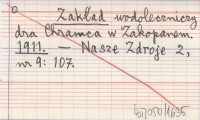 Zakład wodoleczniczy
dra Chramca w Zakopanem.
1911. — Nasze Zdroje 2,
nr 9: 107.